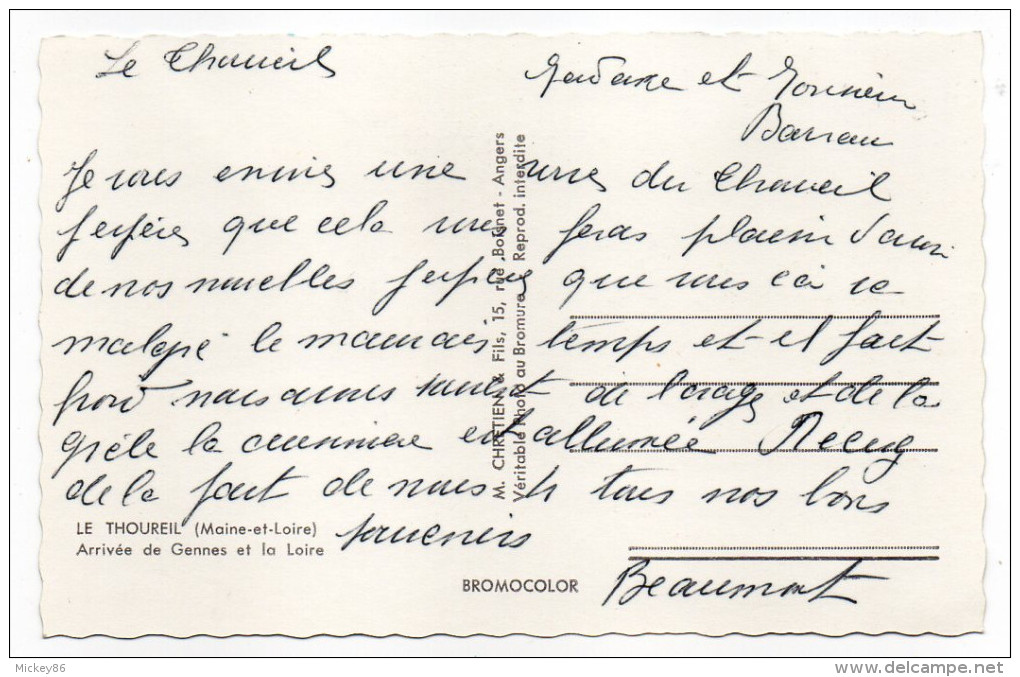 Le Thoureil
Madame et Monsieur
Barrau
Je vous envoie une vues du Thoureil
j'espère que cela vous feras plaisir d'avoir
de nos nouvelles j'espère que vous
malgré le mauvais temps et il fait
froid nous avons souvent de l'orage et de la
grèle la cuisinière est allumée Recevez
de la part de nous tous nos bons
souvenirs
Beaumont
LE THOUREIL (Maine-et-Loire)
Arrivée de Gennes et la Loire
BROMOCOLOR
M. CHRETIEN & Fils, 15, rue Boisnet - Angers
Véritable Photo au Bromure Reprod. interdite
Mickey86
www.delcampe.net